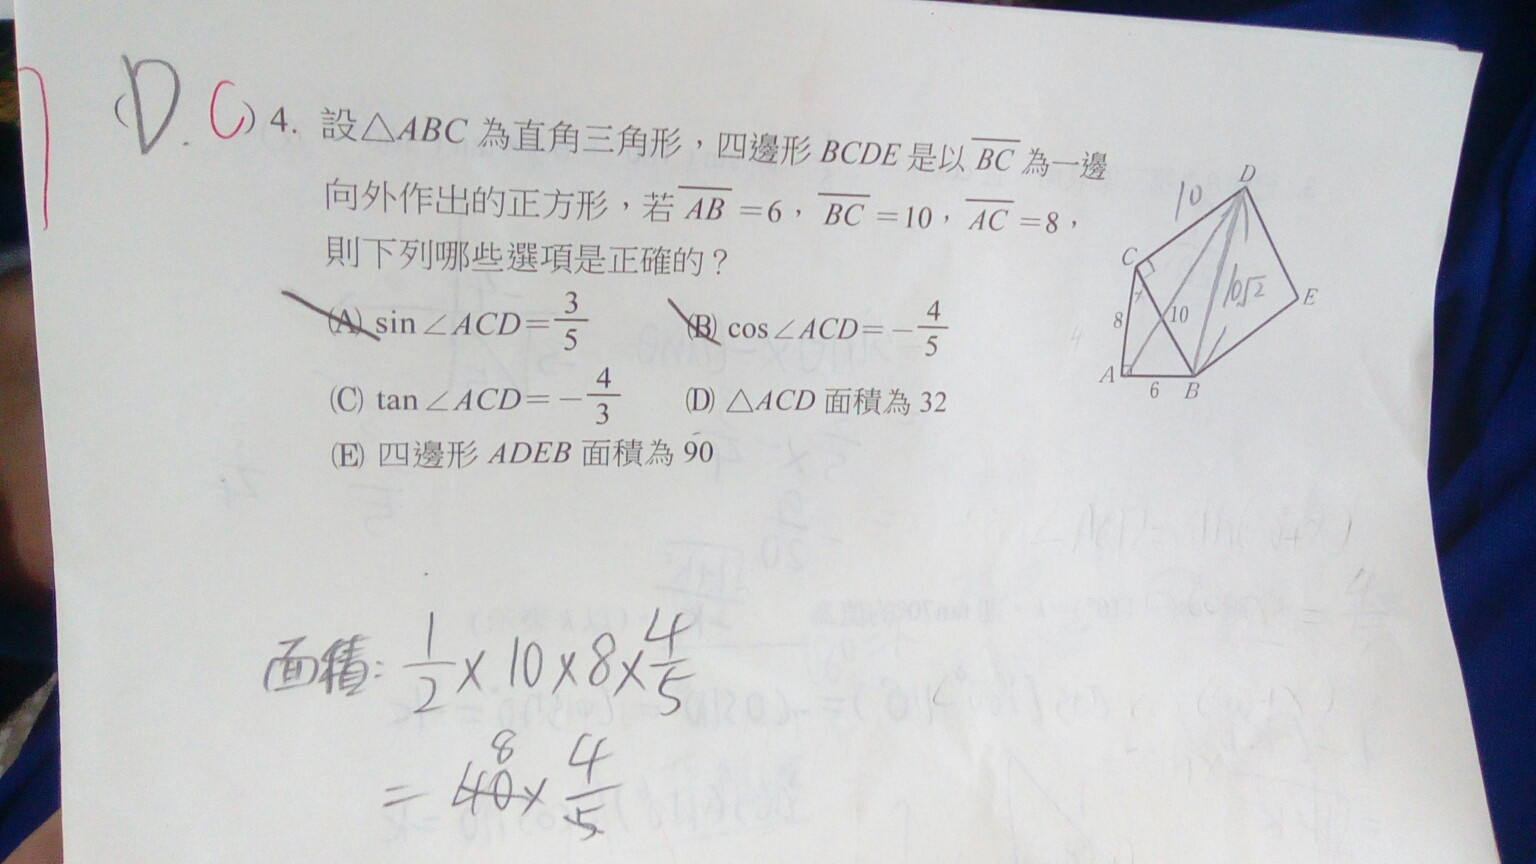 (D.C) 4. 設△ABC 為直角三角形，四邊形 BCDE 是以 BC 為一邊
向外作出的正方形，若 AB =6， BC =10， AC =8，
則下列哪些選項是正確的？
(A) sin ∠ACD= 3/5 (B) cos ∠ACD= - 4/5
(C) tan ∠ACD= - 4/3 (D) △ACD 面積為 32
(E) 四邊形 ADEB 面積為 90
D
10
C
10√2
E
8
10
A
6
B
面積: 1/2 × 10 × 8 × 4/5
8
= 40 × 4/5